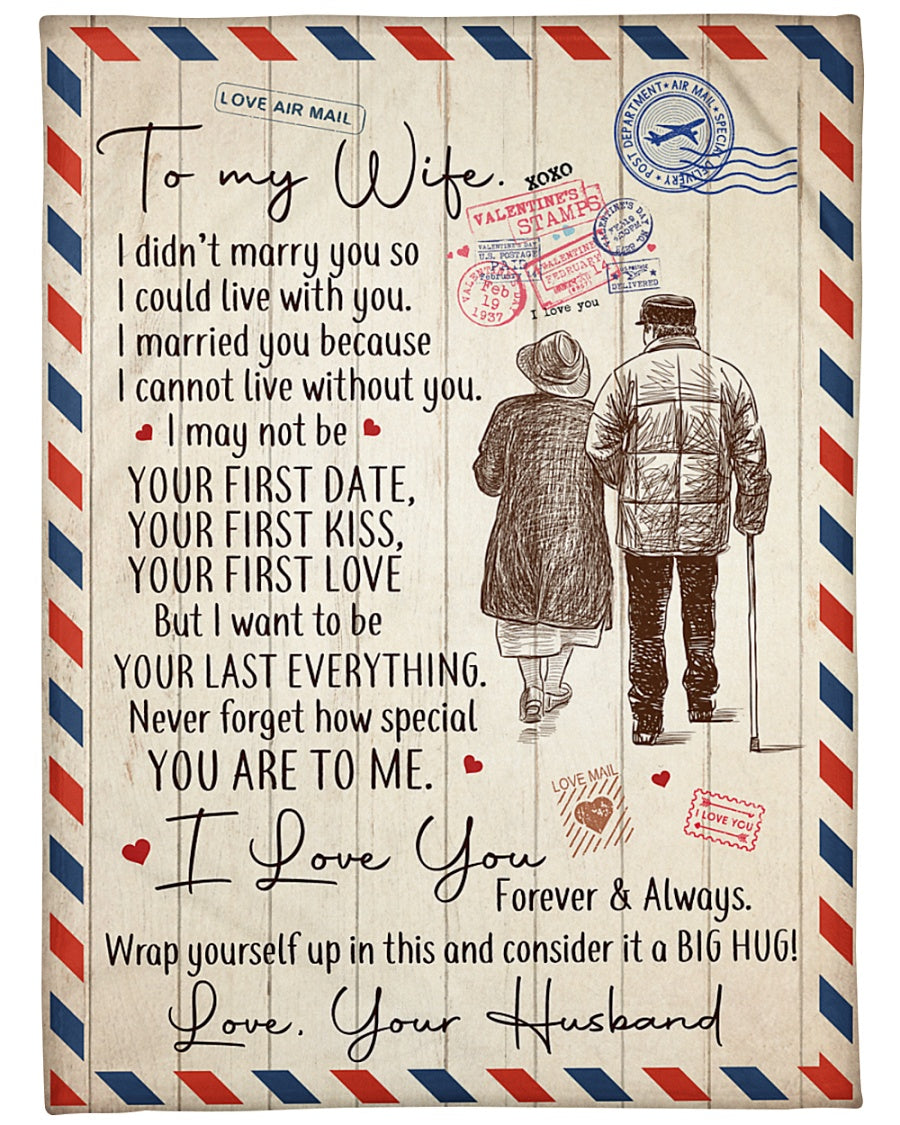 LOVE AIR MAIL
POST DEPARTMENT ★ AIR MAIL ★ SPECIAL DELIVERY ★
To my Wife.
XOXO
VALENTINE'S
STAMPS
VALENTINE'S DAY
U.S. POSTAGE
PAID
VALENTINE
FEBRUARY
14
DELIVERED
Feb
19
1937
I love you
I didn't marry you so
I could live with you.
I married you because
I cannot live without you.
I may not be
YOUR FIRST DATE,
YOUR FIRST KISS,
YOUR FIRST LOVE
But I want to be
YOUR LAST EVERYTHING.
Never forget how special
YOU ARE TO ME.
LOVE MAIL
I LOVE YOU
I Love You
Forever & Always.
Wrap yourself up in this and consider it a BIG HUG!
Love, Your Husband